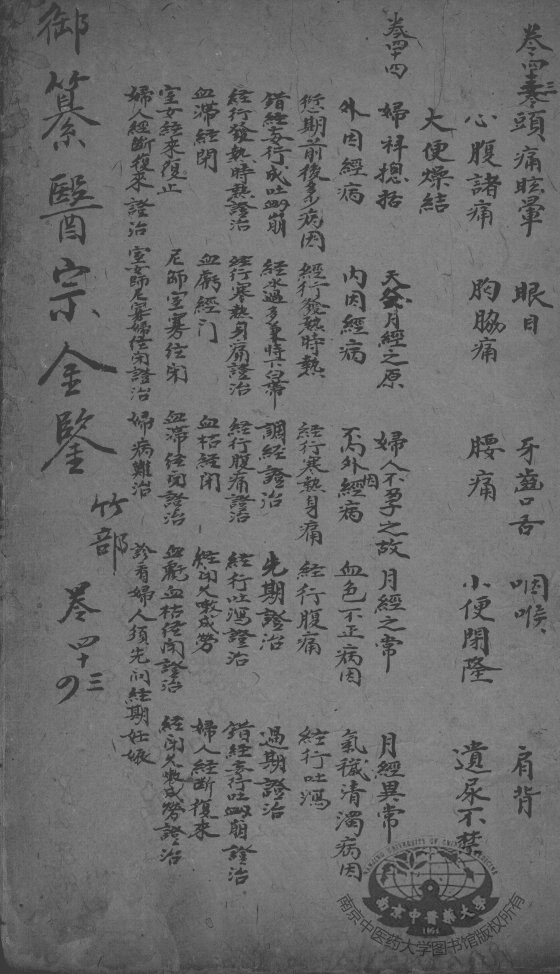 卷四十三 頭痛眩暈 眼目 牙齒口舌 咽喉 肩背
心腹諸痛 胸脇痛 腰痛 小便閉癃 遺尿不禁
大便燥結
卷四十四 婦科總括 天癸月經之原 婦人不孕之故 月經之常 月經異常
外因經病 內因經病 不內外因經病 血色不正病因 氣穢清濁病因
愆期前後多少病因 經行發熱時熱 經行寒熱身痛 經行腹痛 經行吐瀉
錯經妄行成吐衄崩 經水過多兼時下白帶 調經證治 先期證治 過期證治
經行發熱時熱證治 經行寒熱身痛證治 經行腹痛證治 經行吐瀉證治 錯經妄行吐衄崩證治
血滯經閉 血虧經閉 血枯經閉 經閉久嗽成勞 婦人經斷復來
室女經來復止 尼師室寡經閉 血滯經閉證治 血虧血枯經閉證治 經閉久嗽成勞證治
婦人經斷復來證治 室女師尼寡婦經閉證治 婦病難治 診看婦人須先問經期妊娠
御纂醫宗金鑒
竹部 卷四十三
四
NANJING UNIVERSITY OF CHINESE MEDICINE
南京中醫藥大學
1954
南京中医药大学图书馆版权所有